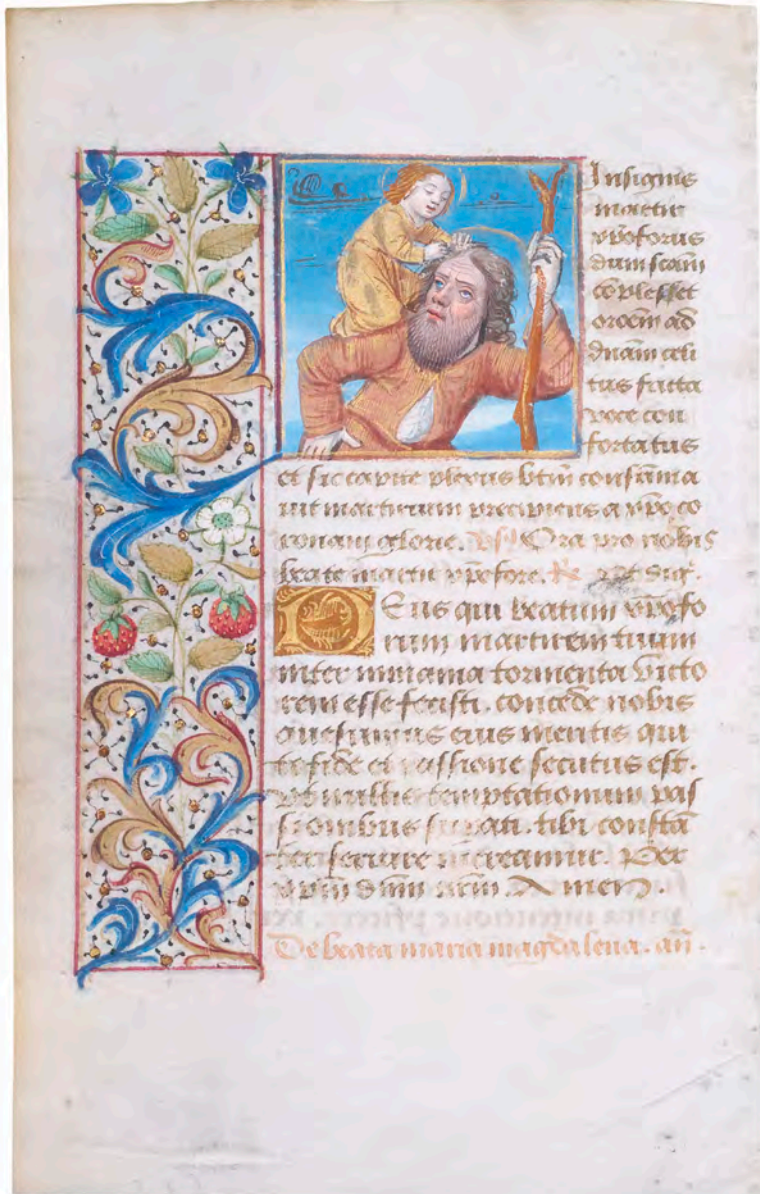 Insignis
martir
xp̄oforus
dum scam̄
cōplesset
or̄oem ad
dn̄am celi
tus facta
voce con
fortatus
et sic capite plexus
uit martirium precipiens a xp̄o co
ronam glorie. Ora pro nobis
beate martir xp̄ofore. Vt diḡ.
Deus qui beatum xp̄ofo
rum martirem tuum
inter immania tormenta victo
rem esse fecisti. concede nobis
quesumus eius meritis qui
te fide et passione secutus est.
vt multis temptationum pas
sionibus tibi constā
ter seruire mereamur. Per
xp̄m dn̄m nr̄m. Amen.
De beata maria magdalena. an̄.